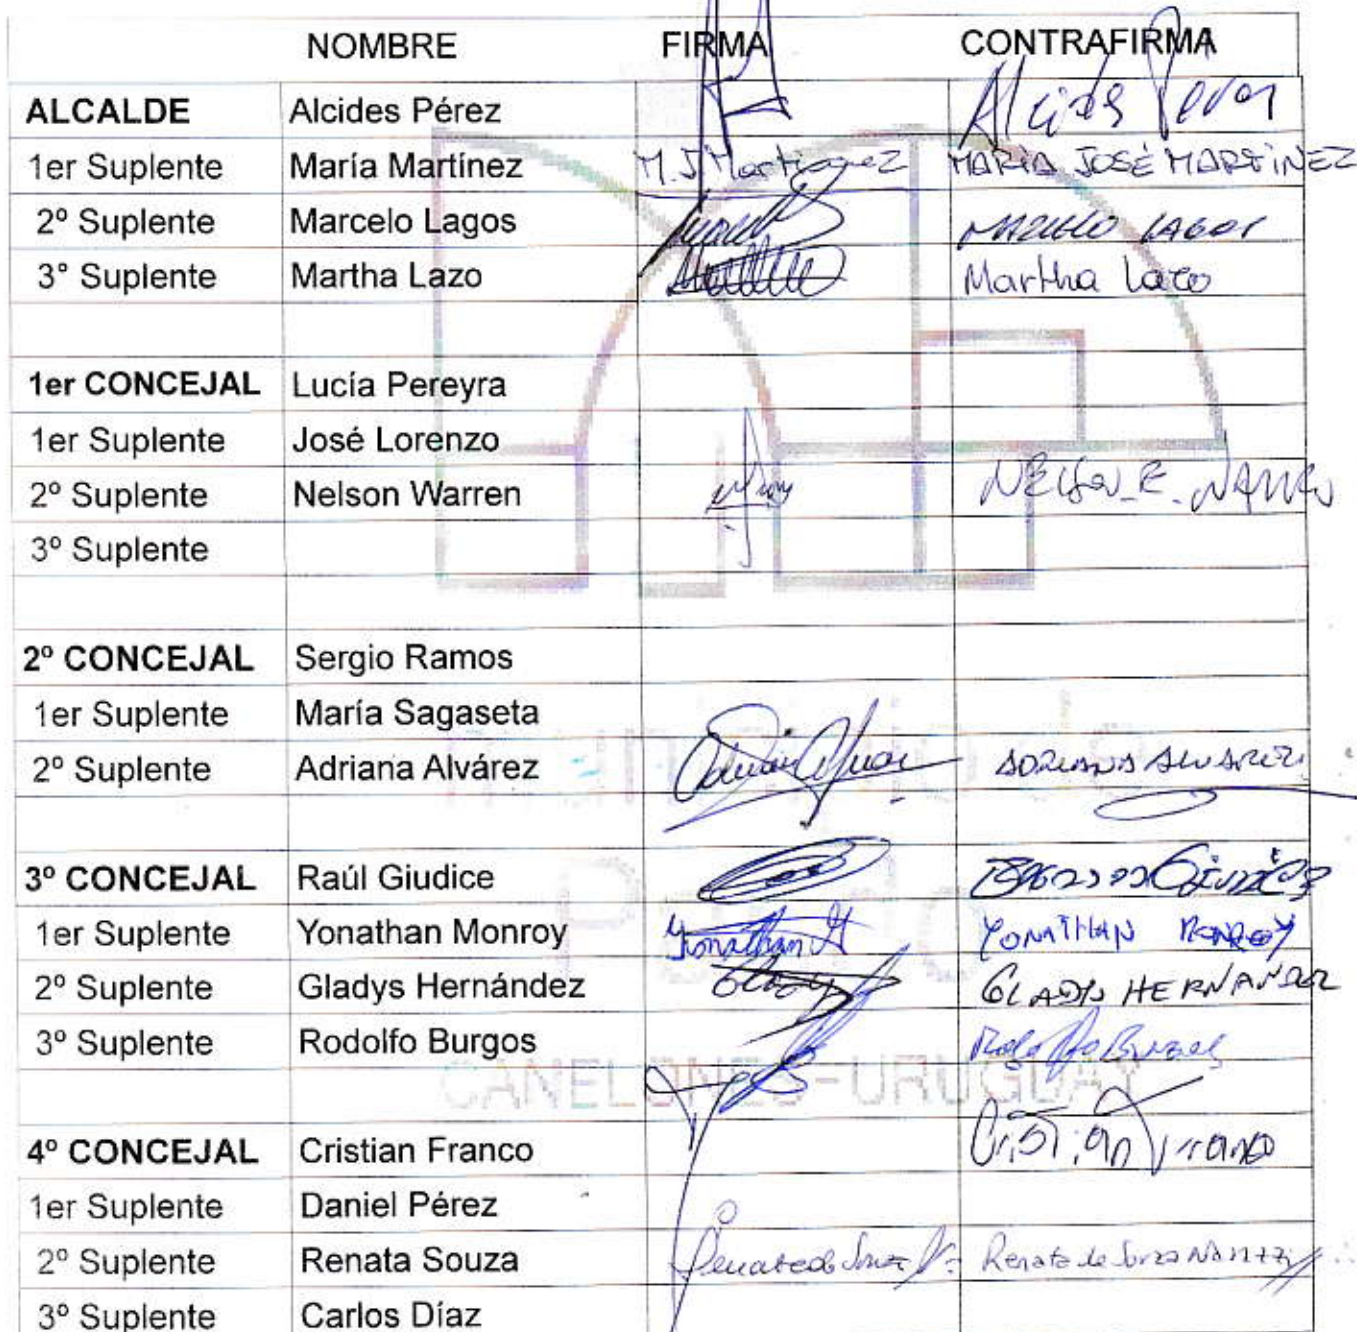 NOMBRE FIRMA CONTRAFIRMA
ALCALDE Alcides Pérez Alcides Perez
1er Suplente María Martínez M.J. Martinez MARÍA JOSÉ MARTÍNEZ
2º Suplente Marcelo Lagos MARCELO LAGOS
3° Suplente Martha Lazo Martha Lazo
1er CONCEJAL Lucía Pereyra
1er Suplente José Lorenzo
2º Suplente Nelson Warren NELSON E. WARREN
3º Suplente
2º CONCEJAL Sergio Ramos
1er Suplente María Sagaseta
2º Suplente Adriana Alvárez ADRIANA ALVAREZ
3º CONCEJAL Raúl Giudice
1er Suplente Yonathan Monroy Yonathan M YONATHAN MONROY
2º Suplente Gladys Hernández GLADYS HERNANDEZ
3º Suplente Rodolfo Burgos Rodolfo Burgos
CANELONES-URUGUAY
4º CONCEJAL Cristian Franco Cristian Franco
1er Suplente Daniel Pérez
2º Suplente Renata Souza Renata de Souza
3º Suplente Carlos Díaz